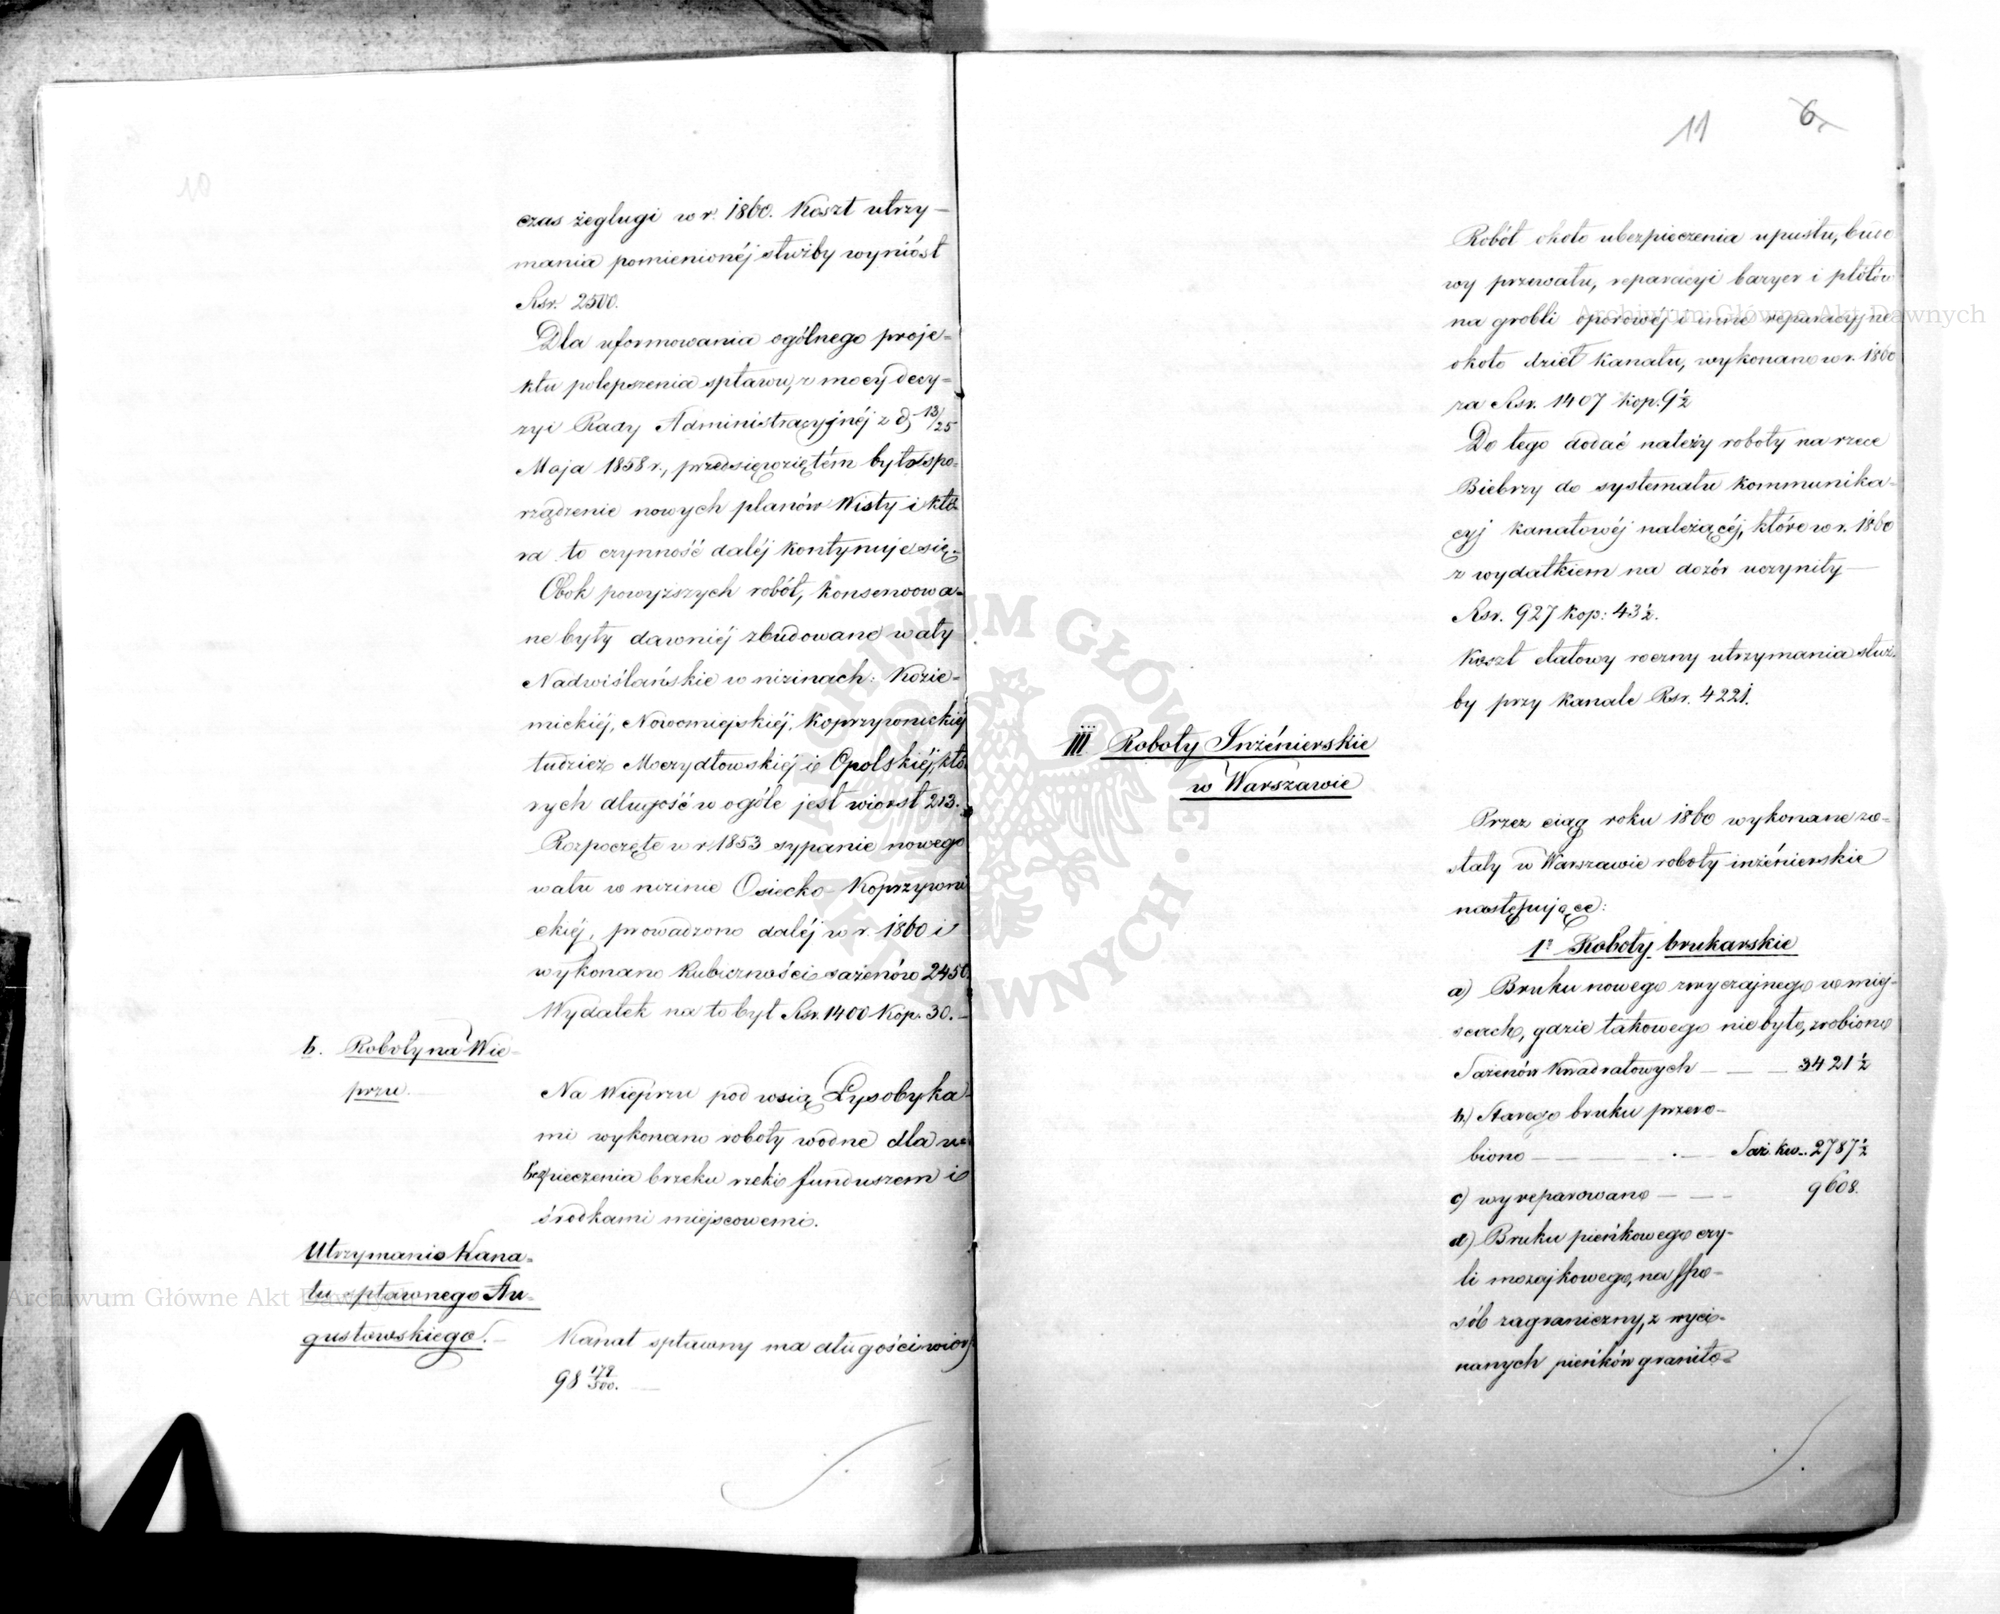 czas żeglugi w r. 1860. Koszt utrzy-
mania pomienionéj służby wyniósł
Rsr. 2500.
Dla uformowania ogólnego proje-
ktu polepszenia spławu, z mocy decy-
zyi Rady Administracyjnéj z d. 13/25
Maja 1858 r., przedsięwziętém było spo-
rządzenie nowych planów Wisły i któ-
ra to czynność daléj kontynuje się.
Obok powyższych robót, konserwowa-
ne były dawniéj zbudowane wały
Nadwiślańskie w nizinach: Kozie-
nickiéj, Nowomiejskiéj, Koprzywnickiéj
tudzież Moczydłowskiéj i Opolskiéj, któ-
rych długość w ogóle jest wiorst 213.
Rozpoczęte w r. 1853 sypanie nowego
wału w nizinie Osiecko-Koprzywni
ckiéj, prowadzono daléj w r. 1860 i
wykonano kubiczności sażenów 2450.
Wydatek na to był Rsr. 1400 Kop. 30.-
b. Roboty na Wie-
przu.
Na Wieprzu pod wsią Łysobyka-
mi wykonano roboty wodne dla u-
bezpieczenia brzeku rzeki funduszem i
środkami miejscowemi.
Utrzymanie Kana-
łu spławnego Au-
gustowskiego.
Kanał spławny ma długości wior
98 179/500.
11 6
Robót około ubezpieczenia upustu, budo
wy przewału, reparacyi baryer i płótów
na grobli oporowéj i inne reparacyjne
około dzieł kanału, wykonano w r. 1860
za Rsr. 1407 kop. 9½
Do tego dodać należy roboty na rzece
Biebrzy do systematu kommunika-
cyj kanałowéj należącéj, które w r. 1860
z wydatkiem na dozór uczyniły
Rsr. 927 kop: 43½.
Koszt etatowy roczny utrzymania służ-
by przy kanale Rsr. 4221.
III Roboty Inżénierskie
w Warszawie
Przez ciąg roku 1860 wykonane zo-
stały w Warszawie roboty inżénierskie
następujące:
1º Roboty brukarskie
a) Bruku nowego zwyczajnego w miej-
scach, gdzie takowego nie było, zrobiono
Sażenów kwadratowych 3421½
b) Starego bruku przero-
biono Saż. kw. 2787½
c) wyreparowano 9608.
d) Bruku pieńkowego czy-
li mozajkowego, na spo-
sób zagraniczny, z wyci-
nanych pieńków granito-
Archiwum Główne Akt Dawnych
Archiwum Główne Akt Dawnych
ARCHIWUM GŁÓWNE AKT DAWNYCH